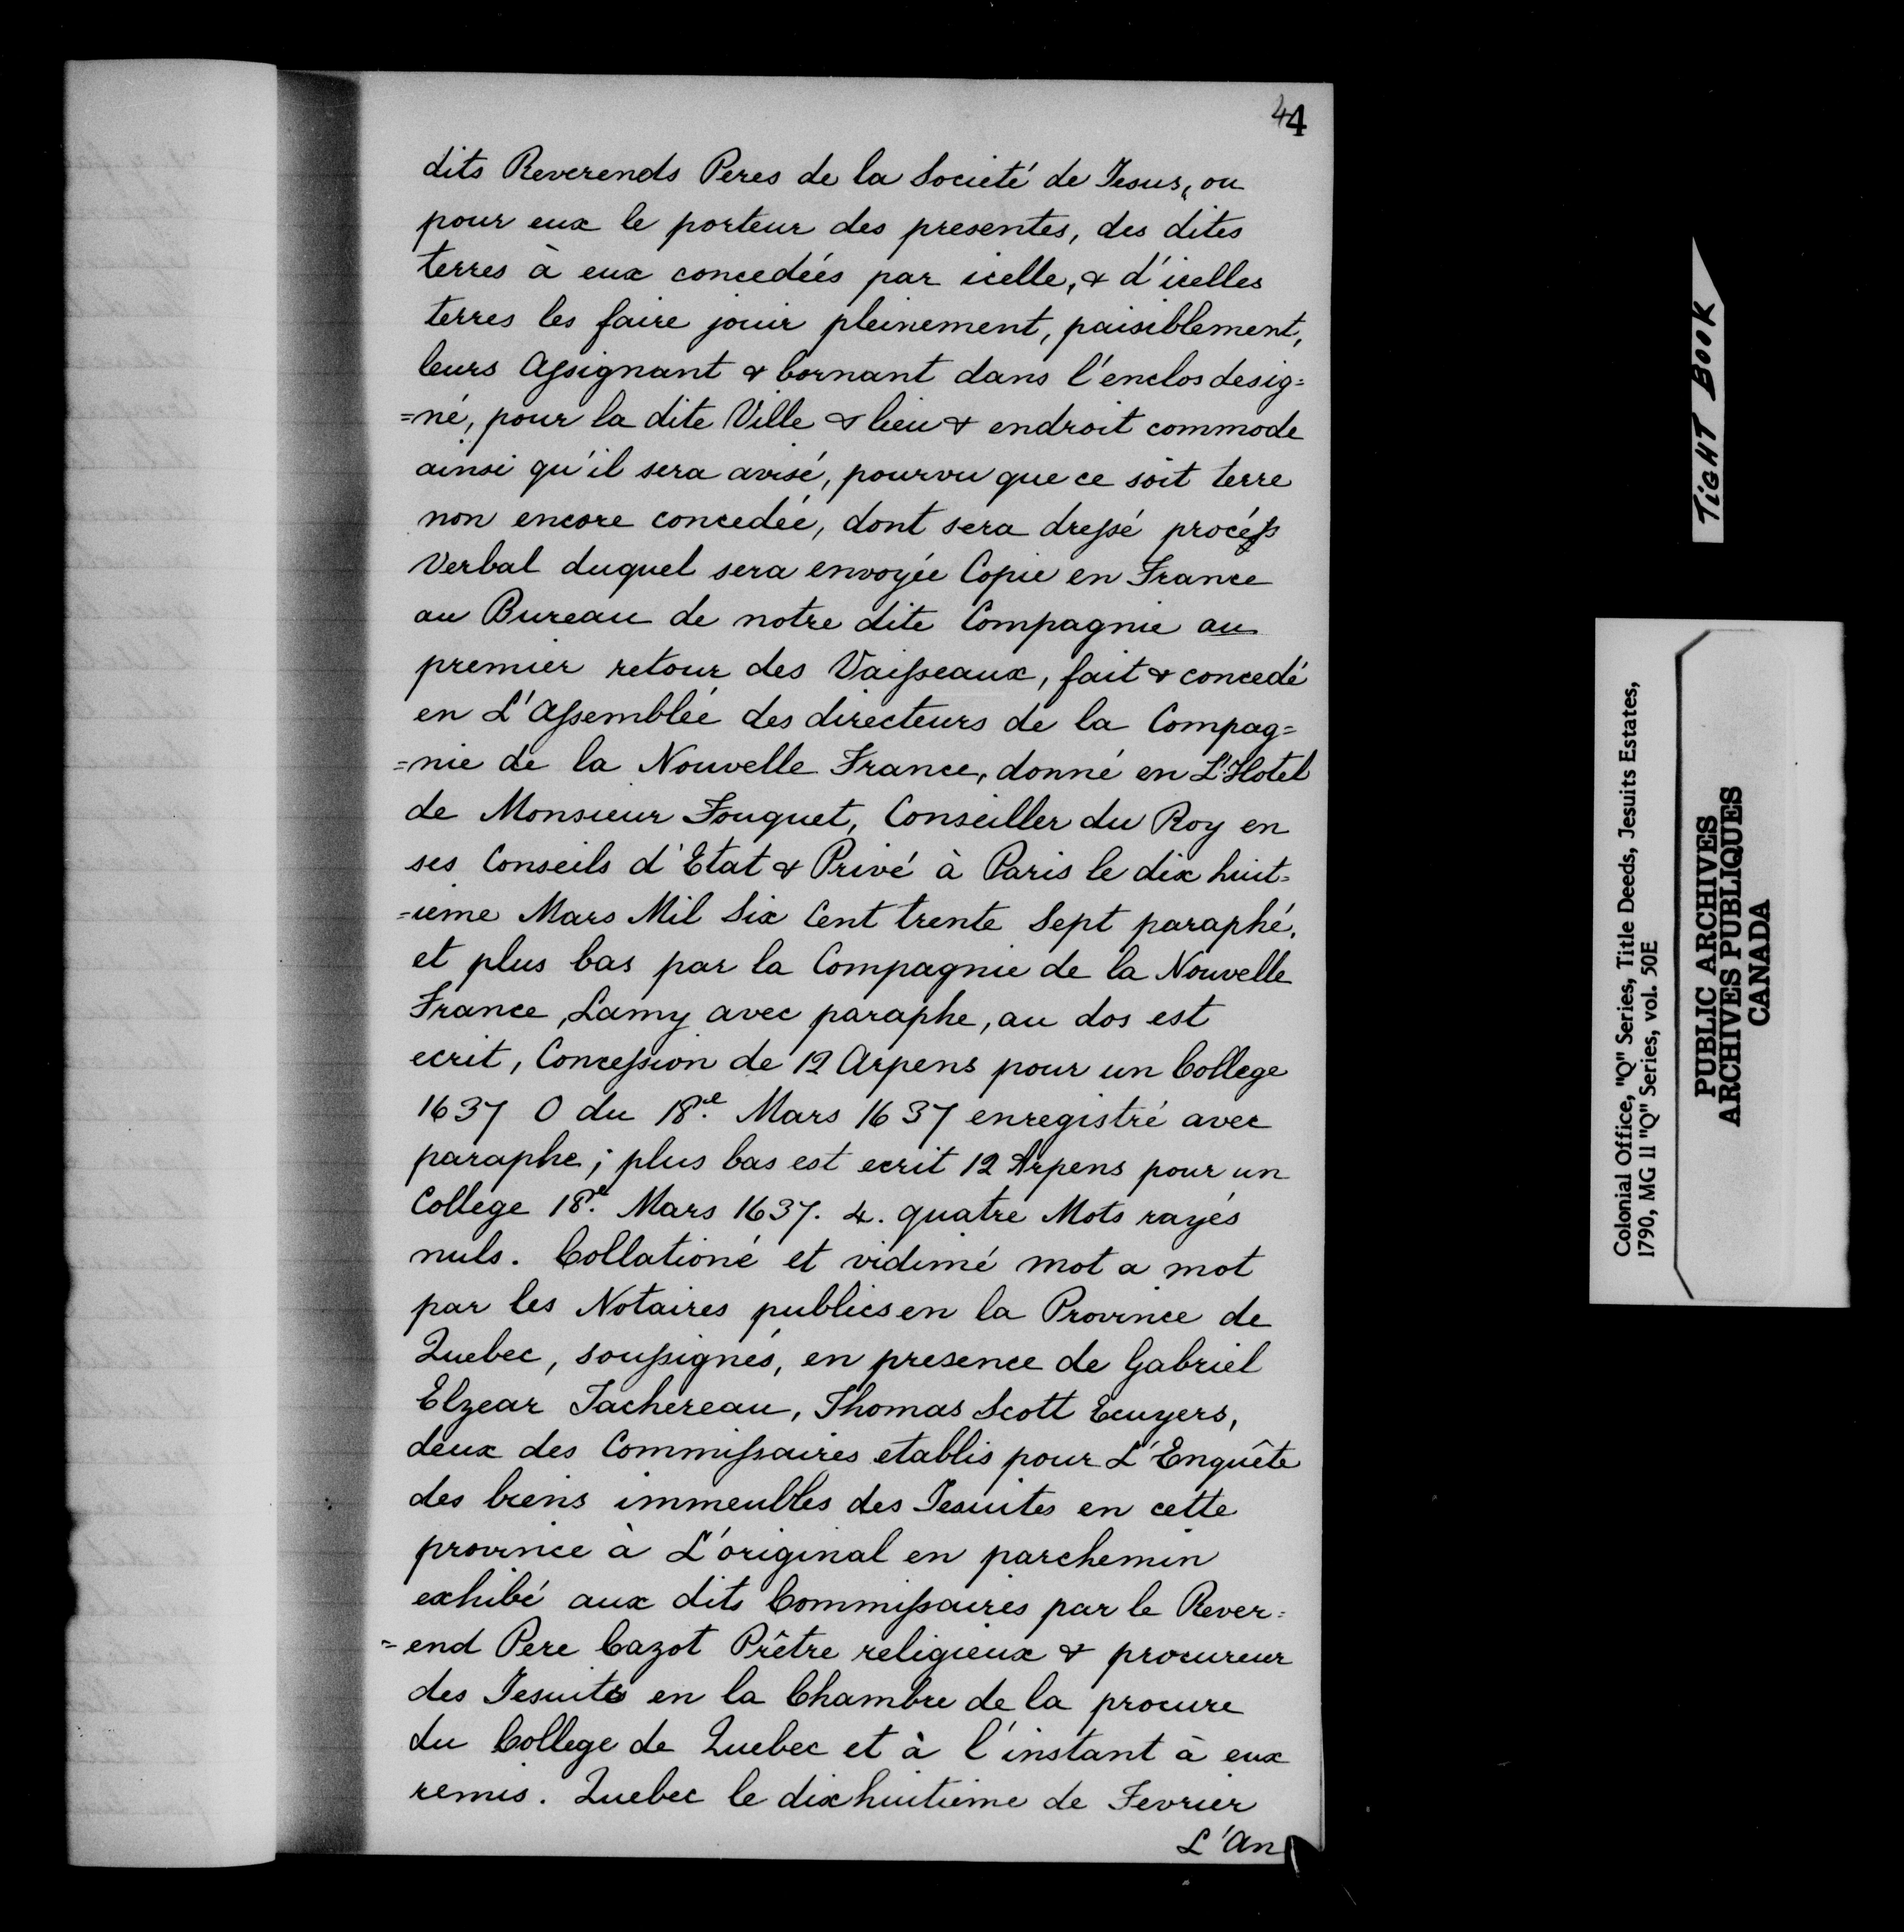 44
dits Reverends Peres de la Societé de Jesus, ou
pour eux le porteur des presentes, des dites
terres à eux concedéés par icelle, & d'icelles
terres les faire jouir pleinement, paisiblement,
leurs Assignant & bornant dans l'enclos desig=
=né, pour la dite Ville & lieu & endroit commode
ainsi qu'il sera avisé, pourvu que ce soit terre
non encore concedéé, dont sera dressé procéss
Verbal duquel sera envoyée Copie en France
au Bureau de notre dite Compagnie au
premier retour des Vaisseaux, fait & concedé
en L'Assemblée des directeurs de la Compag=
=nie de la Nouvelle France, donné en L'Hotel
de Monsieur Fouquet, Conseiller du Roy en
ses Conseils d'Etat & Privé à Paris le dix huit=
=ieme Mars Mil Six Cent trente Sept paraphé,
et plus bas par la Compagnie de la Nouvelle
France, Lamy avec paraphe, au dos est
ecrit, Concession de 12 Arpens pour un College
1637 O du 18.e Mars 1637 enregistré avec
paraphe; plus bas est ecrit 12 Arpens pour un
College 18.e Mars 1637. 4. quatre Mots rayés
nuls. Collationé et vidimé mot a mot
par les Notaires publics en la Province de
Quebec, soussignés, en presence de Gabriel
Elzear Tachereau, Thomas Scott Ecuyers,
deux des Commissaires etablis pour L'Enquête
des biens immeubles des Jesuites en cette
province à L'original en parchemin
exhibé aux dits Commissaires par le Rever=
=end Pere Cazot Prêtre religieux & procureur
des Jesuites en la Chambre de la procure
du College de Quebec et à l'instant à eux
remis. Quebec le dixhuitieme de Fevrier
L'An
TIGHT BOOK
Colonial Office, "Q" Series, Title Deeds, Jesuits Estates,
1790, MG 11 "Q" Series, vol. 50E
PUBLIC ARCHIVES
ARCHIVES PUBLIQUES
CANADA